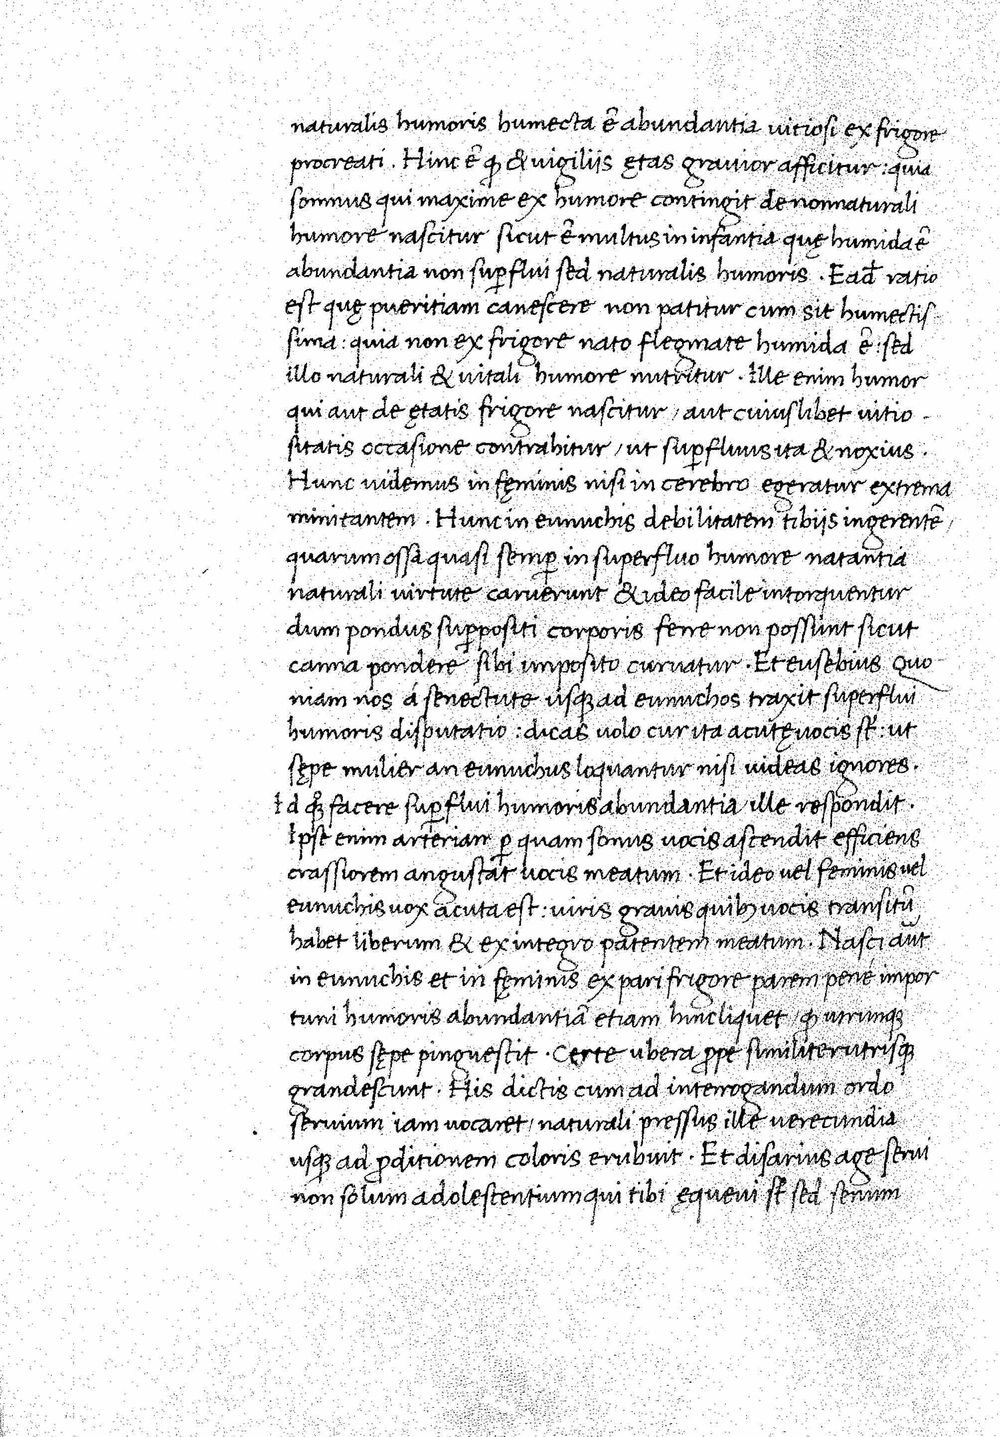 naturalis humoris humecta ē abundantia uitiosi ex frigore
procreati . Hinc ē ꝙ & uigiliis ętas grauior afficitur : quia
somnus qui maxime ex humore contingit de nonnaturali
humore nascitur sicut ē multus in infantia quę humida ē
abundantia non suꝑflui sed naturalis humoris . Ead̄ ratio
est quę pueritiam canescere non patitur cum sit humectis-
sima : quia non ex frigore nato flegmate humida ē : sed
illo naturali & uitali humore nutritur . Ille enim humor
qui aut de ętatis frigore nascitur / aut cuiuslibet uitio -
sitatis occasione contrahitur / ut suꝑfluus ita & noxius .
Hunc uidemus in fęminis nisi in cerebro egeratur extrema
minitantem . Hunc in eunuchis debilitatem tibiis ingerentē /
quarum ossa quasi semꝑ in superfluo humore natantia
naturali uirtute caruerunt & ideo facile intorquentur
dum pondus suꝑpositi corporis ferre non possunt sicut
canna pondere sibi imposito curuatur . Et eusebius Quo-
niam nos á senectute usqꝫ ad eunuchos traxit superflui
humoris disputatio : dicas uolo cur ita acutę uocis st̄ : ut
sępe mulier an eunuchus loquantur nisi uideas ignores .
Id qꝫ facere suꝑflui humoris abundantia ille respondit .
Ipse enim arteriam ꝑ quam sonus uocis ascendit efficiens
crassiorem angustat uocis meatum . Et ideo uel feminis uel
eunuchis uox acuta est : uiris grauis quibꝫ uocis transitū
habet liberum & ex integro patentem meatum . Nasci aūt
in eunuchis et in fęminis ex pari frigore parem pene impor
tuni humoris abundantiā etiam hinc liquet / ꝙ utrunqꝫ
corpus sępe pinguescit . Certe ubera ꝓpe similiter utrisqꝫ
grandescunt . His dictis cum ad interrogandum ordo
seruium iam uocaret / naturali pressus ille uerecundia
usqꝫ ad ꝓditionem coloris erubuit . Et disarius age serui
non solum adolescentium qui tibi ęqueui st̄ sed senum